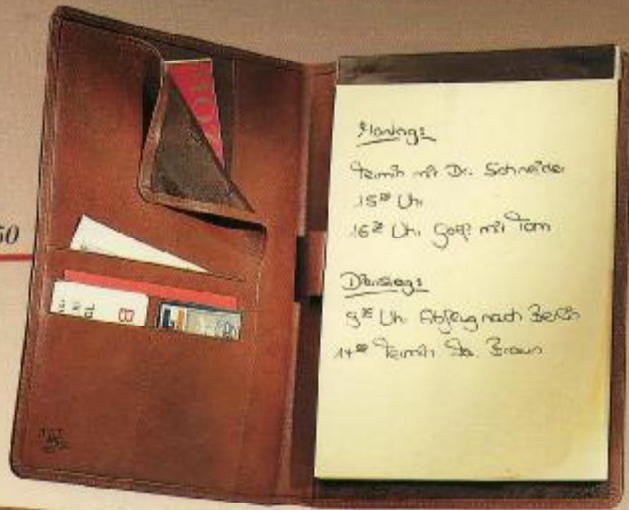 50
Montag:
Termin mit Dr. Schneider
15⁰⁰ Uhr
16³⁰ Uhr Golf mit Tom
Dienstag:
Uhr Abflug nach Berlin
14⁰⁰ Termin Fa. Braun